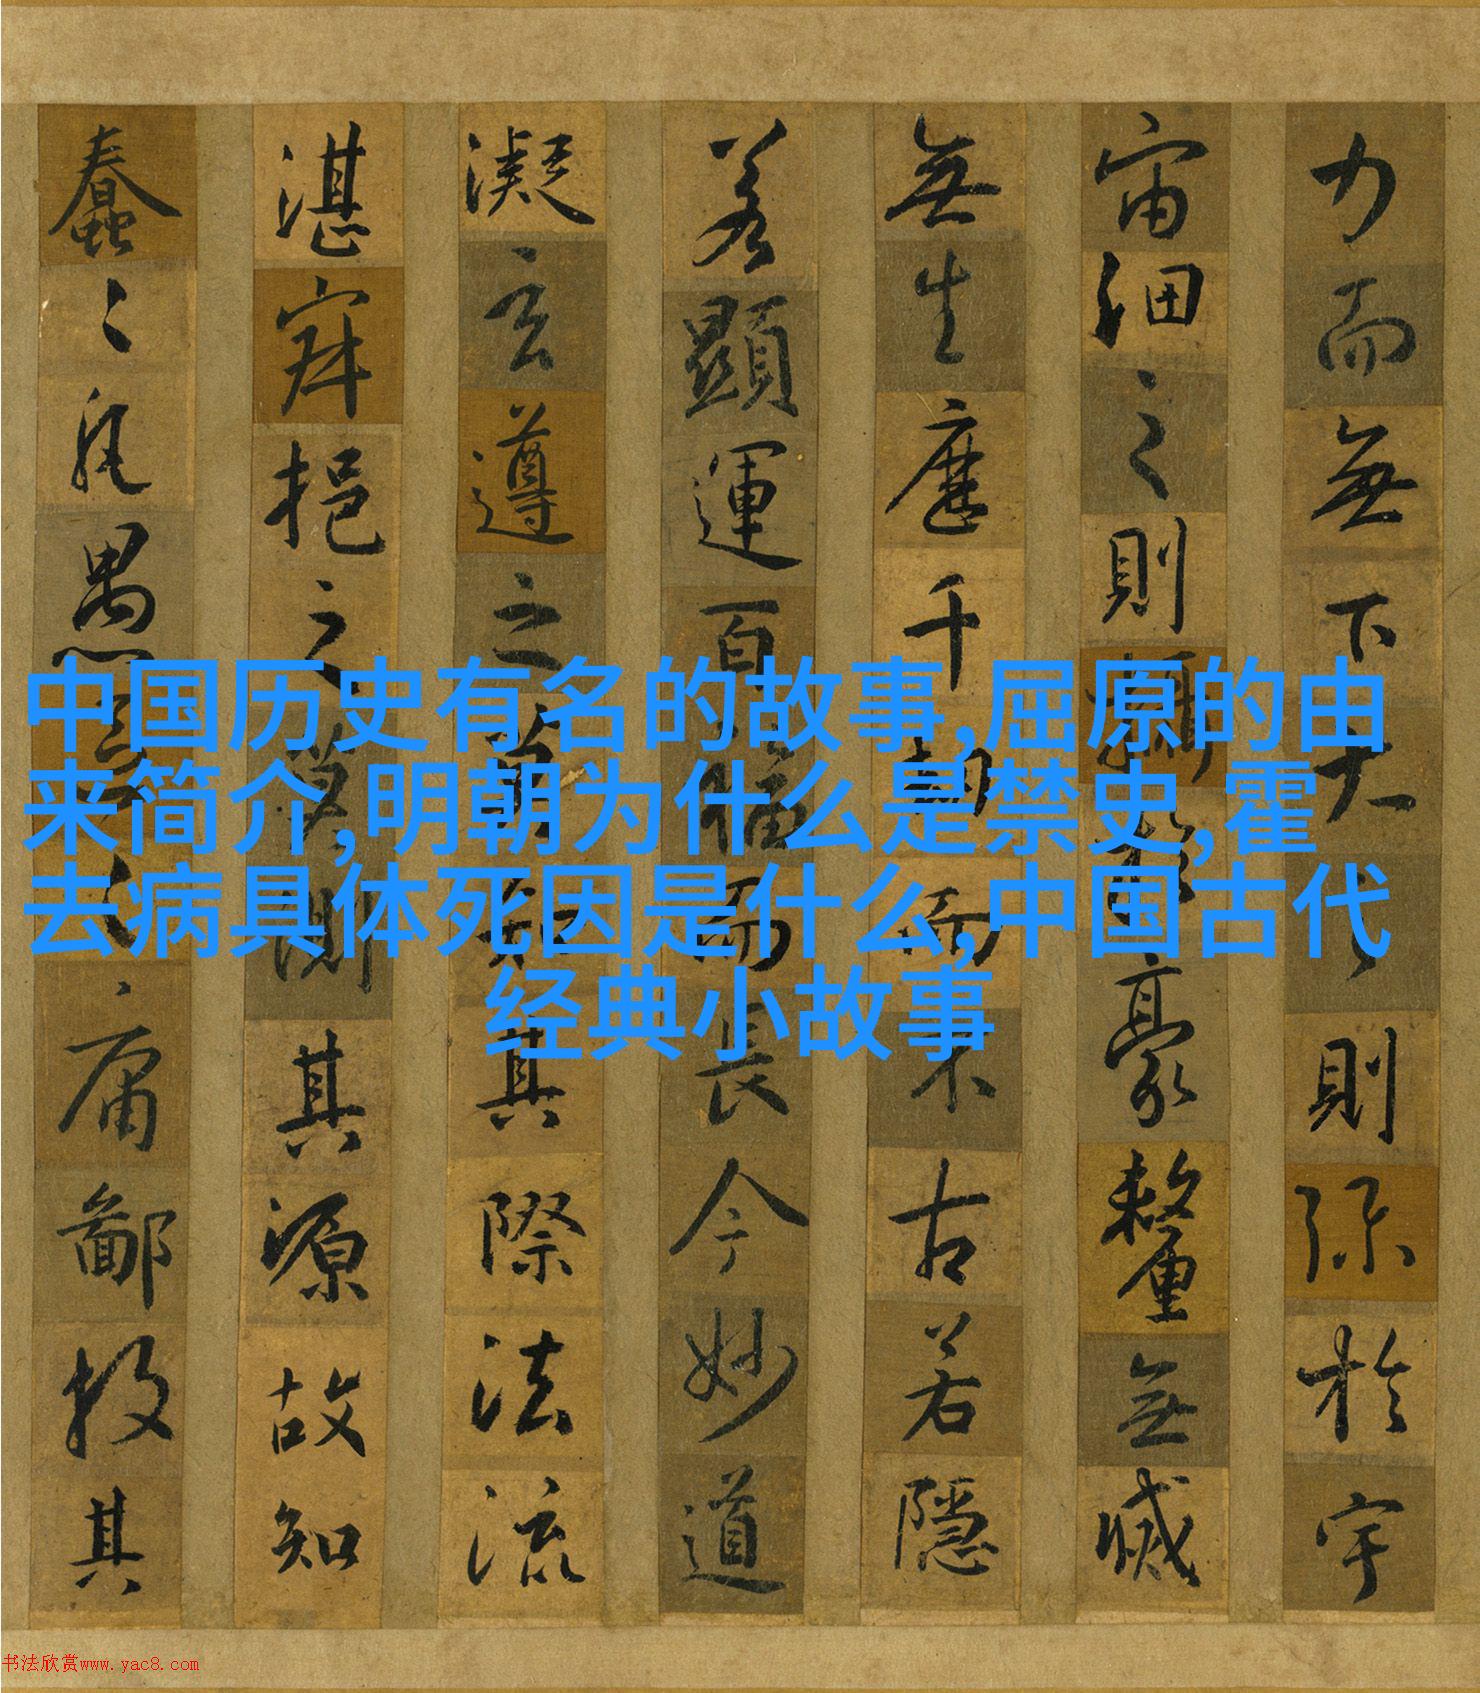 力而無下大之則弥於宇
宙細之則攝於豪釐無滅
無生歷千劫而不古若隱
若顯運百福而長今妙道
凝玄遵之莫知其際法流
湛寂挹之莫測其源故知
蠢々凡愚區々庸鄙投其
中国历史有名的故事,屈原的由
来简介,明朝为什么是禁史,霍
去病具体死因是什么,中国古代
经典小故事
书法欣赏www.yac8.com